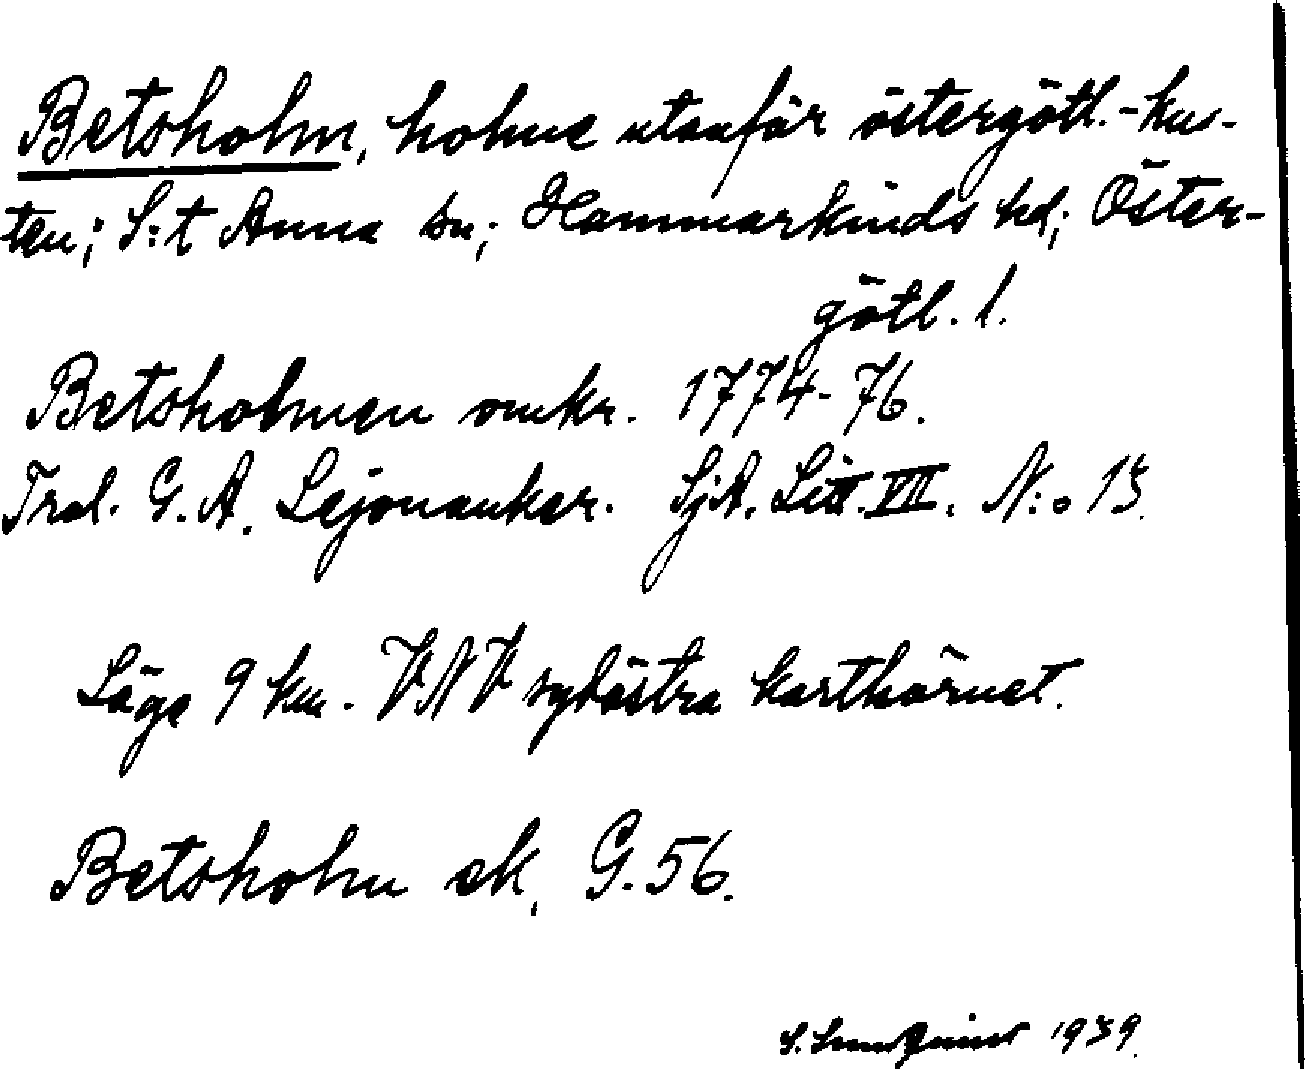 Betsholm, holme utanför östergötl.-kus-
ten; S:t Anna sn; Hammarkinds hd; Öster-
götl. l.
Betsholmen omkr. 1774-76.
Trol. G. A. Lejonankar. SjA. Litt. VII. N:o 13.
Läge 9 km. VNV sydöstra karthörnet.
Betsholm ek, G. 56.
S. 1939.